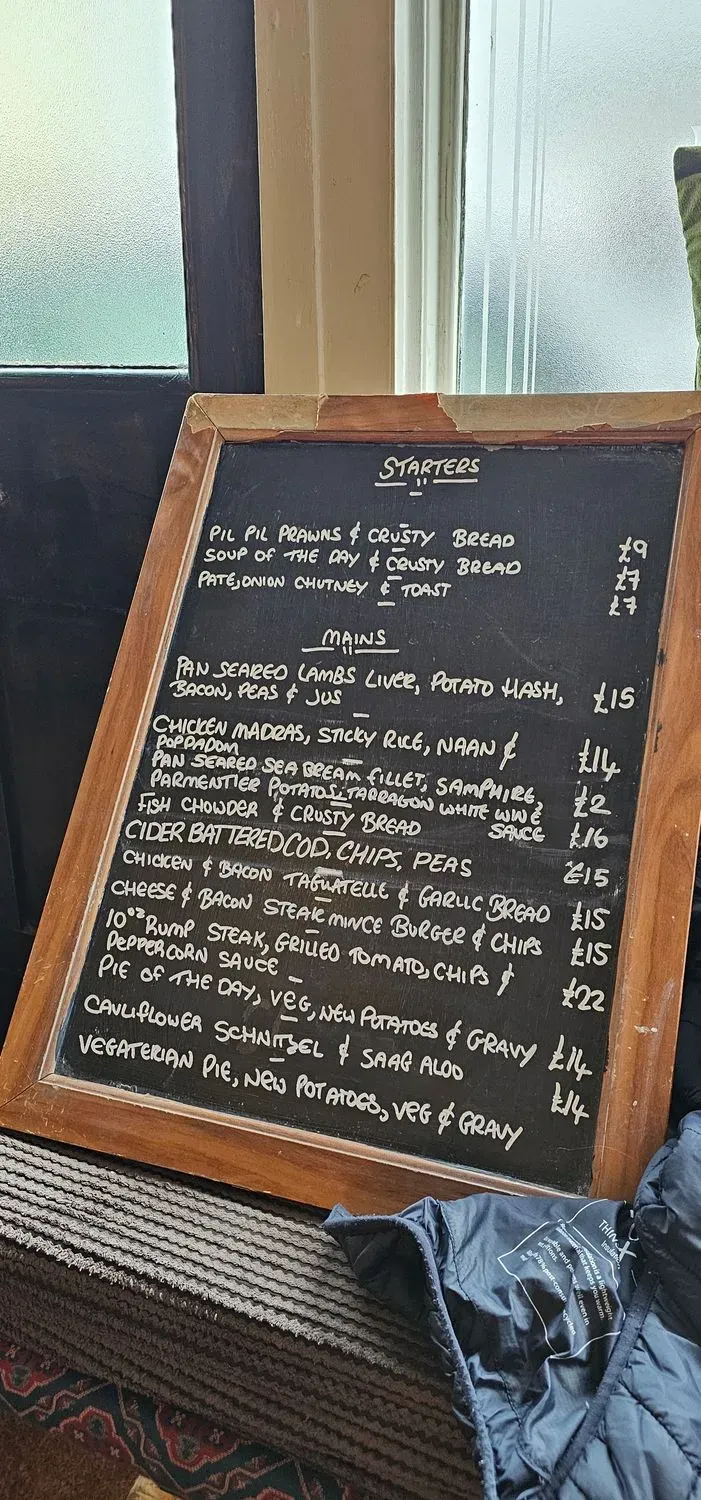 STARTERS
PIL PIL PRAWNS & CRUSTY BREAD £9
SOUP OF THE DAY & CRUSTY BREAD £7
PATE, ONION CHUTNEY & TOAST £7
MAINS
PAN SEARED LAMBS LIVER, POTATO HASH,
BACON, PEAS & JUS £15
CHICKEN MADRAS, STICKY RICE, NAAN &
POPPADOM £14
PAN SEARED SEA BREAM FILLET, SAMPHIRE,
PARMENTIER POTATOS, TARRAGON WHITE WINE £2
SAUCE
FISH CHOWDER & CRUSTY BREAD £16
CIDER BATTERED COD, CHIPS, PEAS £15
CHICKEN & BACON TAGLIATELLE & GARLIC BREAD £15
CHEESE & BACON STEAK MINCE BURGER & CHIPS £15
10oz RUMP STEAK, GRILLED TOMATO, CHIPS &
PEPPERCORN SAUCE £22
PIE OF THE DAY, VEG, NEW POTATOES & GRAVY £14
CAULIFLOWER SCHNITZEL & SAAG ALOO £14
VEGATERIAN PIE, NEW POTATOES, VEG & GRAVY